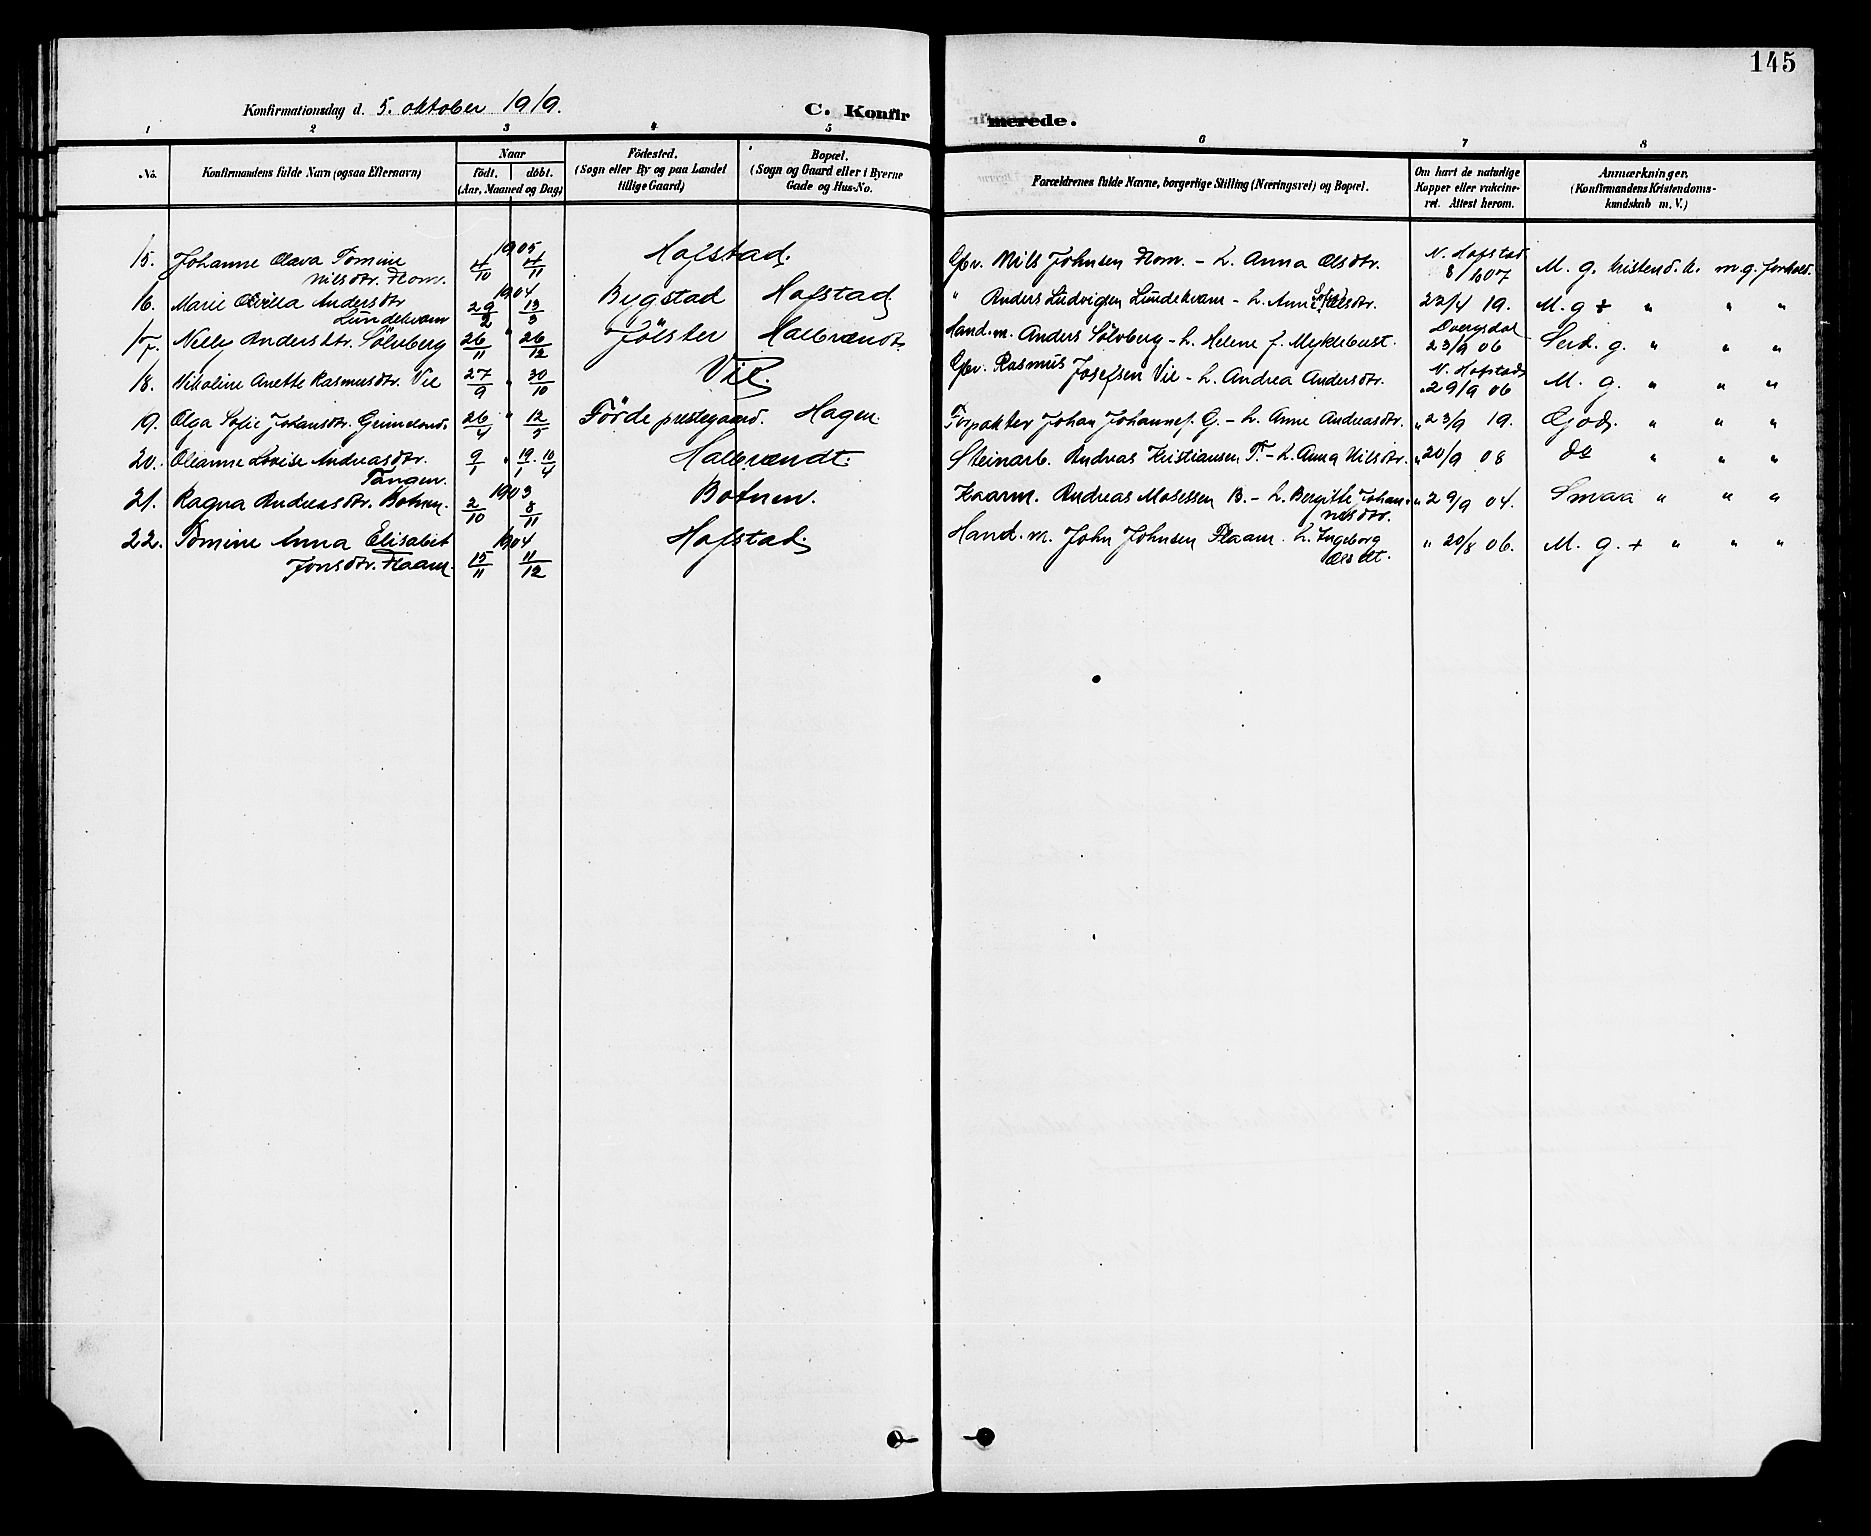 145
Konfirmationsdag d. 5. oktober 1919. C. Konfirmerede.
1 2 3 4 5 6 7 8
No. Konfirmandens fulde Navn (ogsaa Efternavn) Naar födt. döbt. (Aar, Maaned og Dag) Födested. (Sogn eller By og paa Landet tillige Gaard) Bopæl. (Sogn og Gaard eller i Byerne Gade og Hus-No. Forældrenes fulde Navne, borgerlige Stilling (Næringsvei) og Bopæl. Om havt de naturlige Kopper eller vakcineret. Attest herom. Anmærkninger. (Konfirmandens Kristendomskundskab m. V.)
1905
15. Johanne Olava Tomine 4/10 4/11 Hafstad. Gbr. Nils Johnsen Flom. - h. Anna Olsdtr. N. Hafstad 8/10 07 M. g. kristend. k. m. g. forhold.
Nilsdtr. Flom.
1904
16. Marie Andersdtr. 29/2 13/3 Bygstad Hafstad " Anders Ludvigsen Lundekvam - h. Anne Olsdtr. 22/4 19. M. g + " " "
Lundekvam
17. Nelly Andersdtr. Sölvberg 26/11 " 26/12 Jölster Halbrændt. Hand. m. Anders Sölvberg - h. Helene f. Myklebust. 23/9 06 Serd. g. " " "
18. Nikoline Anette Rasmusdtr. Vie 27/9 " 30/10 Vie. Gbr. Rasmus Josefsen Vie - h. Andrea Andersdtr. N. Hafstad 29/9 06 M. g. " " "
19. Olga Sofie Johansdtr. 26/4 " 12/5 Förde prestegaard. Hagen. Forpakter Johan Johannes. G. - h. Anne Andreasdtr. " 23/9 19. God. " " "
20. Oleanne Lovise Andreasdtr. 9/1 " 19. 10/4 Halbrændt. Steinarb. Andreas Kristiansen T. - h. Anna Nilsdtr. " 20/9 08 do " " "
Tangen.
1903
21. Ragna Andreasdtr. Botnen. 2/10 8/11 Botnen. Kaarm. Andreas Mosessen B. - h. Bergitte Johannesdtr. " 29/9 04. Smaa " " "
1904
22. Tomine Anna Elisabet 15/11 11/12 Hafstad. Hand. m. John Johnsen Flaam. h. Ingeborg Olsdt. " 20/8 06. M. g. + " " "
Jonsdtr. Flaam.